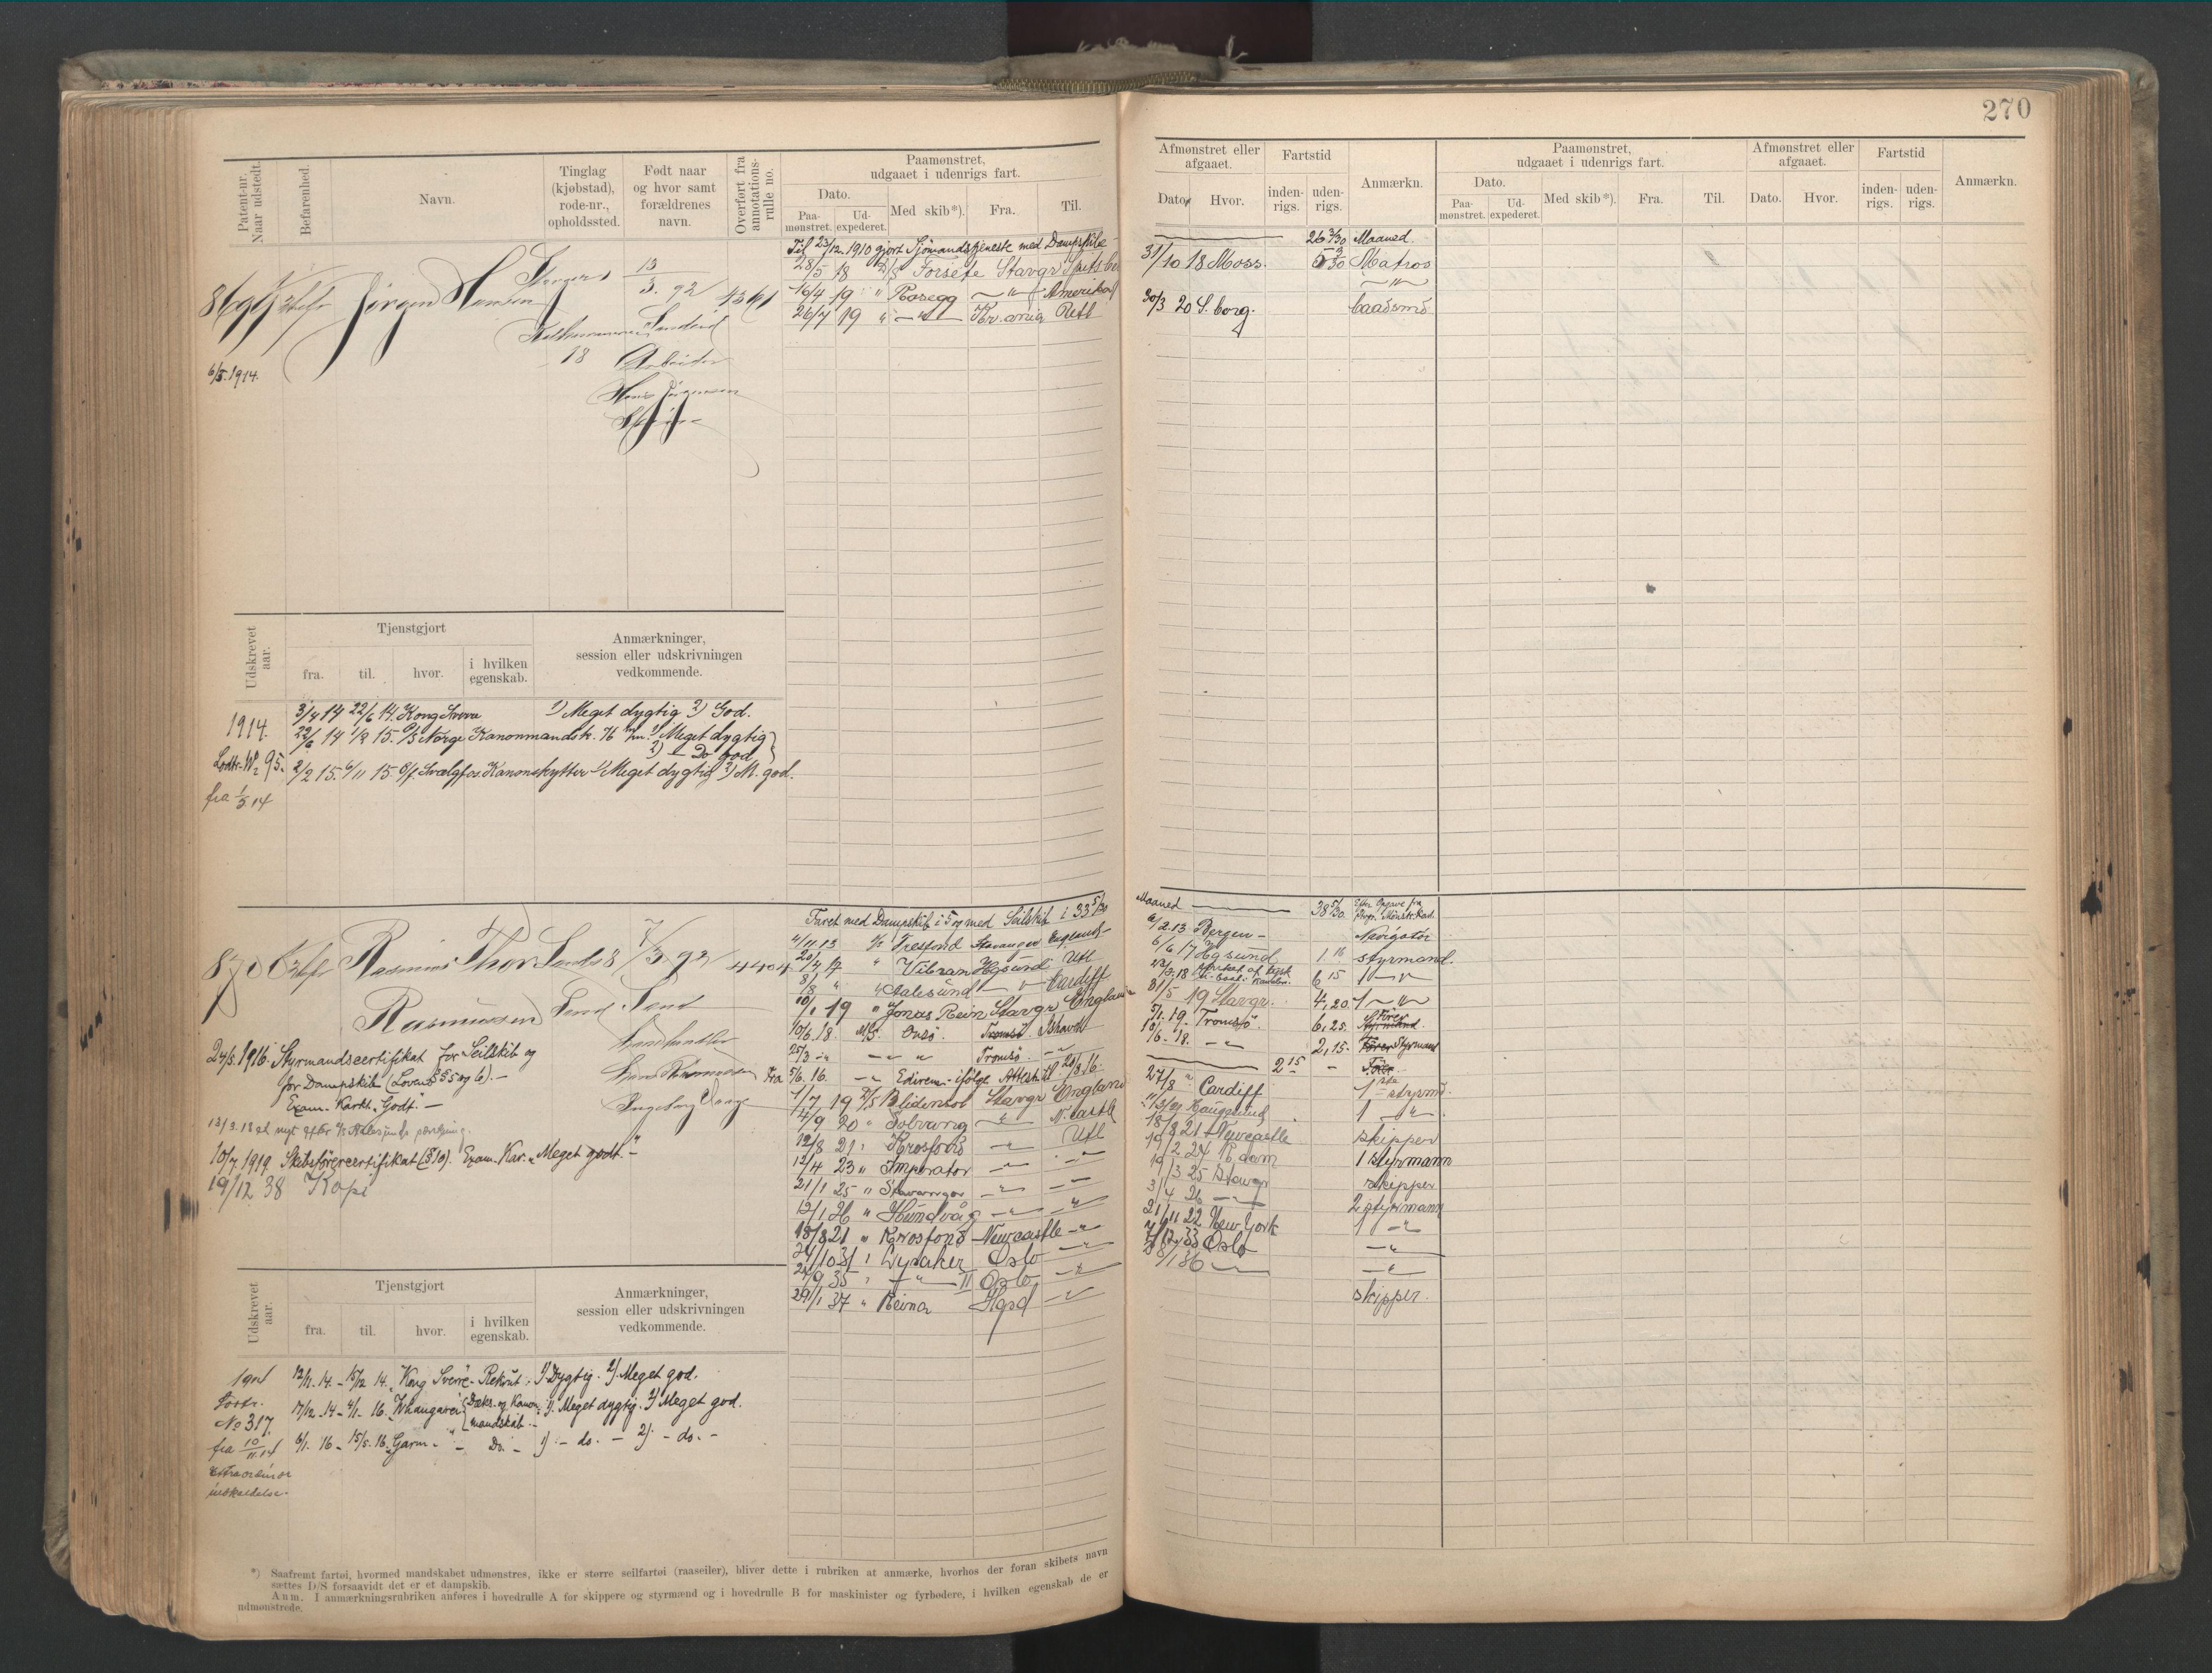 270
Patent-nr. Naar udstedt.
Befarenhed.
Navn.
Tinglag (kjøbstad), rode-nr., opholdssted.
Født naar og hvor samt forældrenes navn.
Overført fra annotations-rulle no.
Paamønstret, udgaaet i udenrigs fart.
Dato.
Paa-mønstret.
Ud-expederet.
Med skib*).
Fra.
Til.
Afmønstret eller afgaaet.
Dato
Hvor.
Fartstid
inden-rigs.
uden-rigs.
Anmærkn.
Paamønstret, udgaaet i udenrigs fart.
Dato.
Paa-mønstret.
Ud-expederet.
Med skib*).
Fra.
Til.
Afmønstret eller afgaaet.
Dato.
Hvor.
Fartstid
inden-rigs.
uden-rigs.
Anmærkn.
8699
Jørgen Hansen
13
3. 92
1361
6/5.1914.
18
Arbeider
Hans Jørgensen
Til 23/12.1910 gjort Sjømandstjeneste med Dampskibe
26 3/30 Maaned.
28/5 18 D/S Forsete Stavgr Spitsb
31/10 18 Moss. Matros
16/4 19 " Rosegg — " — Amerika
26/7 19 " — " — Kr.ania Utl
30/3 20 S.borg. baadsmd
Udskrevet aar.
Tjenstgjort
fra.
til.
hvor.
i hvilken egenskab.
Anmærkninger, session eller udskrivningen vedkommende.
1914.
3/4 14 22/6 14. Kong Sverre 1) Meget dygtig 2) God.
22/6 14 1/2 15. P/S Norge Kanonmandsk. 76 m/m. 1) Meget dygtig
2) — Do god
2/2 15. 6/11 15. Svælgfos Kanonskytter 1) Meget dygtig 2) M. god.
95.
fra 1/5 14
8700
Rasmus Thor
Rasmussen
Sands 8
Sand
7/3. 92
Sand
4404
Ingeborg
24/5.1916. Styrmandscertifikat for Seilskib og
for Dampskib (Lovens §§ 5 og 6). —
Exam. Karkt. „Godt". —
10/7.1919. Skibsførercertifikat (§10). Exam. Kar. „Meget godt." —
19/12 38 Kopi
Faret med Dampskib i 5 og med Seilskib i 33 5/30
Maaned — 38 5/30. Efter Opgave fra
4/11.13 Tresfond Stavanger England —
6/2.13 Bergen — Navigatør
17 " Vibran Hgsund Utl
6/6 17 Hgsund 1 styrmand.
8/18 " Aalesund — " — Cardiff
6 15 1 — " —
10/1 19 " Jonas Rein Stavgr England
31/5 19 Stavgr. 4,20. 1 — " —
10/6.18. M/S. Onsø. Tromsø. Ishavet
5/1.19. Tromsø. 6,25. Fører
25/3 — " — — " — Tromsø. — " —
10/6.18. — " — 2,15. Styrmand
Fra 5/6.16. — " — Edirene - ifølge Attest til 20/8.16.
2 15 — Fører.
1/7 19 D/S Blidensol Stavgr England
27/8 " Cardiff 1ste styrmd.
14/9 20 " Solvang — " — N.castle
Haugesund 1 — " —
12/8 21 " Krosfond — " — Utl
18/8 21 Newcastle skipper
12/4 23 " Imperator — " — — " —
19/2 24 R.dam 1 styrmann
21/1 25 " Stavanger — " — — " —
19/3 25 Stavgr skipper
12/1 26 " Hundvåg — " — — " —
3/4 26 — " — 2 styrmann
18/8 21 " Krosfond Newcastle — " —
21/11 22 New York 1 — " —
24/10 31 " Lysaker Oslo — " —
7/12 33 Oslo — " —
24/9 35 " — " — II Oslo — " —
8/1 36 — " — — " —
29/1 37 " Reina Hgsd — " —
skipper.
Udskrevet aar.
Tjenstgjort
fra.
til.
hvor.
i hvilken egenskab.
Anmærkninger, session eller udskrivningen vedkommende.
1914
12/11. 14. — 15/12 14. „Kong Sverre" — Rekrut. 1) Dygtig. 2) Meget god.
No 317.
17/12. 14 — 4/1. 16. „Whangarei" Dæks. og Kanonmandskab. — 1) Meget dygtig. 2) Meget god.
fra 10/11.14
6/1. 16 — 15/5. 16. „Garm" — — Do. — 1) — do. — 2) — do. —
Extraordinær
indkaldelse.
*) Saafremt fartøi, hvormed mandskabet udmønstres, ikke er større seilfartøi (raaseiler), bliver dette i rubriken at anmærke, hvorhos der foran skibets navn
sættes D/S forsaavidt det er et dampskib.
Anm. I anmærkningsrubriken anføres i hovedrulle A for skippere og styrmænd og i hovedrulle B for maskinister og fyrbødere, i hvilken egenskab de er
udmønstrede.